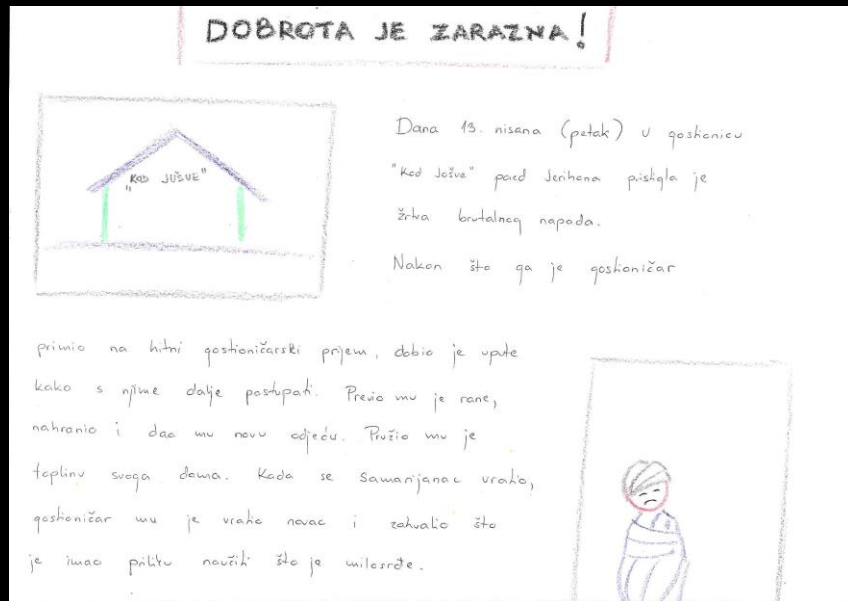 DOBROTA JE ZARAZNA!
"KOD JOŠUE"
Dana 13. nisana (petak) u gostionicu
"Kod Jošue" pored Jerihona pristigla je
žrtva brutalnog napada.
Nakon što ga je gostioničar
primio na hitni gostioničarski prijem, dobio je upute
kako s njime dalje postupati. Previo mu je rane,
nahranio i dao mu novu odjeću. Pružio mu je
toplinu svoga doma. Kada se Samarijanac vratio,
gostioničar mu je vratio novac i zahvalio što
je imao priliku naučiti što je milosrđe.